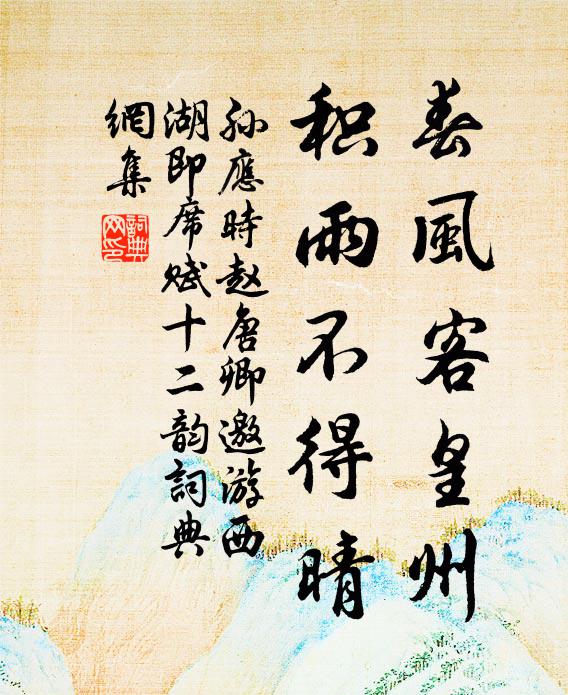 春風客皇州
積雨不得晴
孫應時趙唐卿邀游西
湖即席賦十二韵詞典
網集
詞典
網印